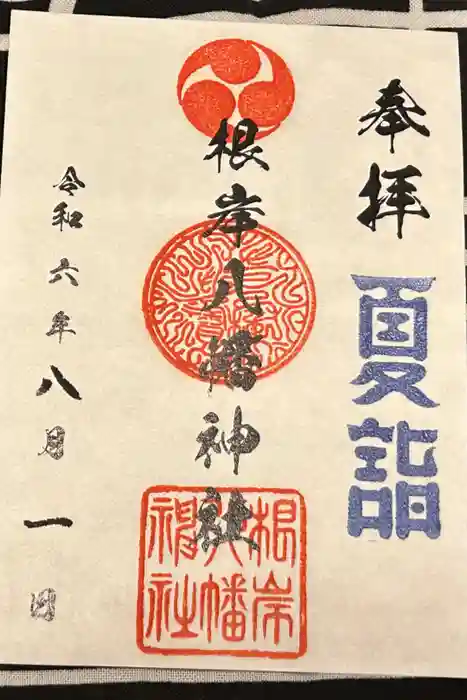 奉拝
夏詣
根岸八幡神社
根岸
八幡
神社
令和六年八月一日